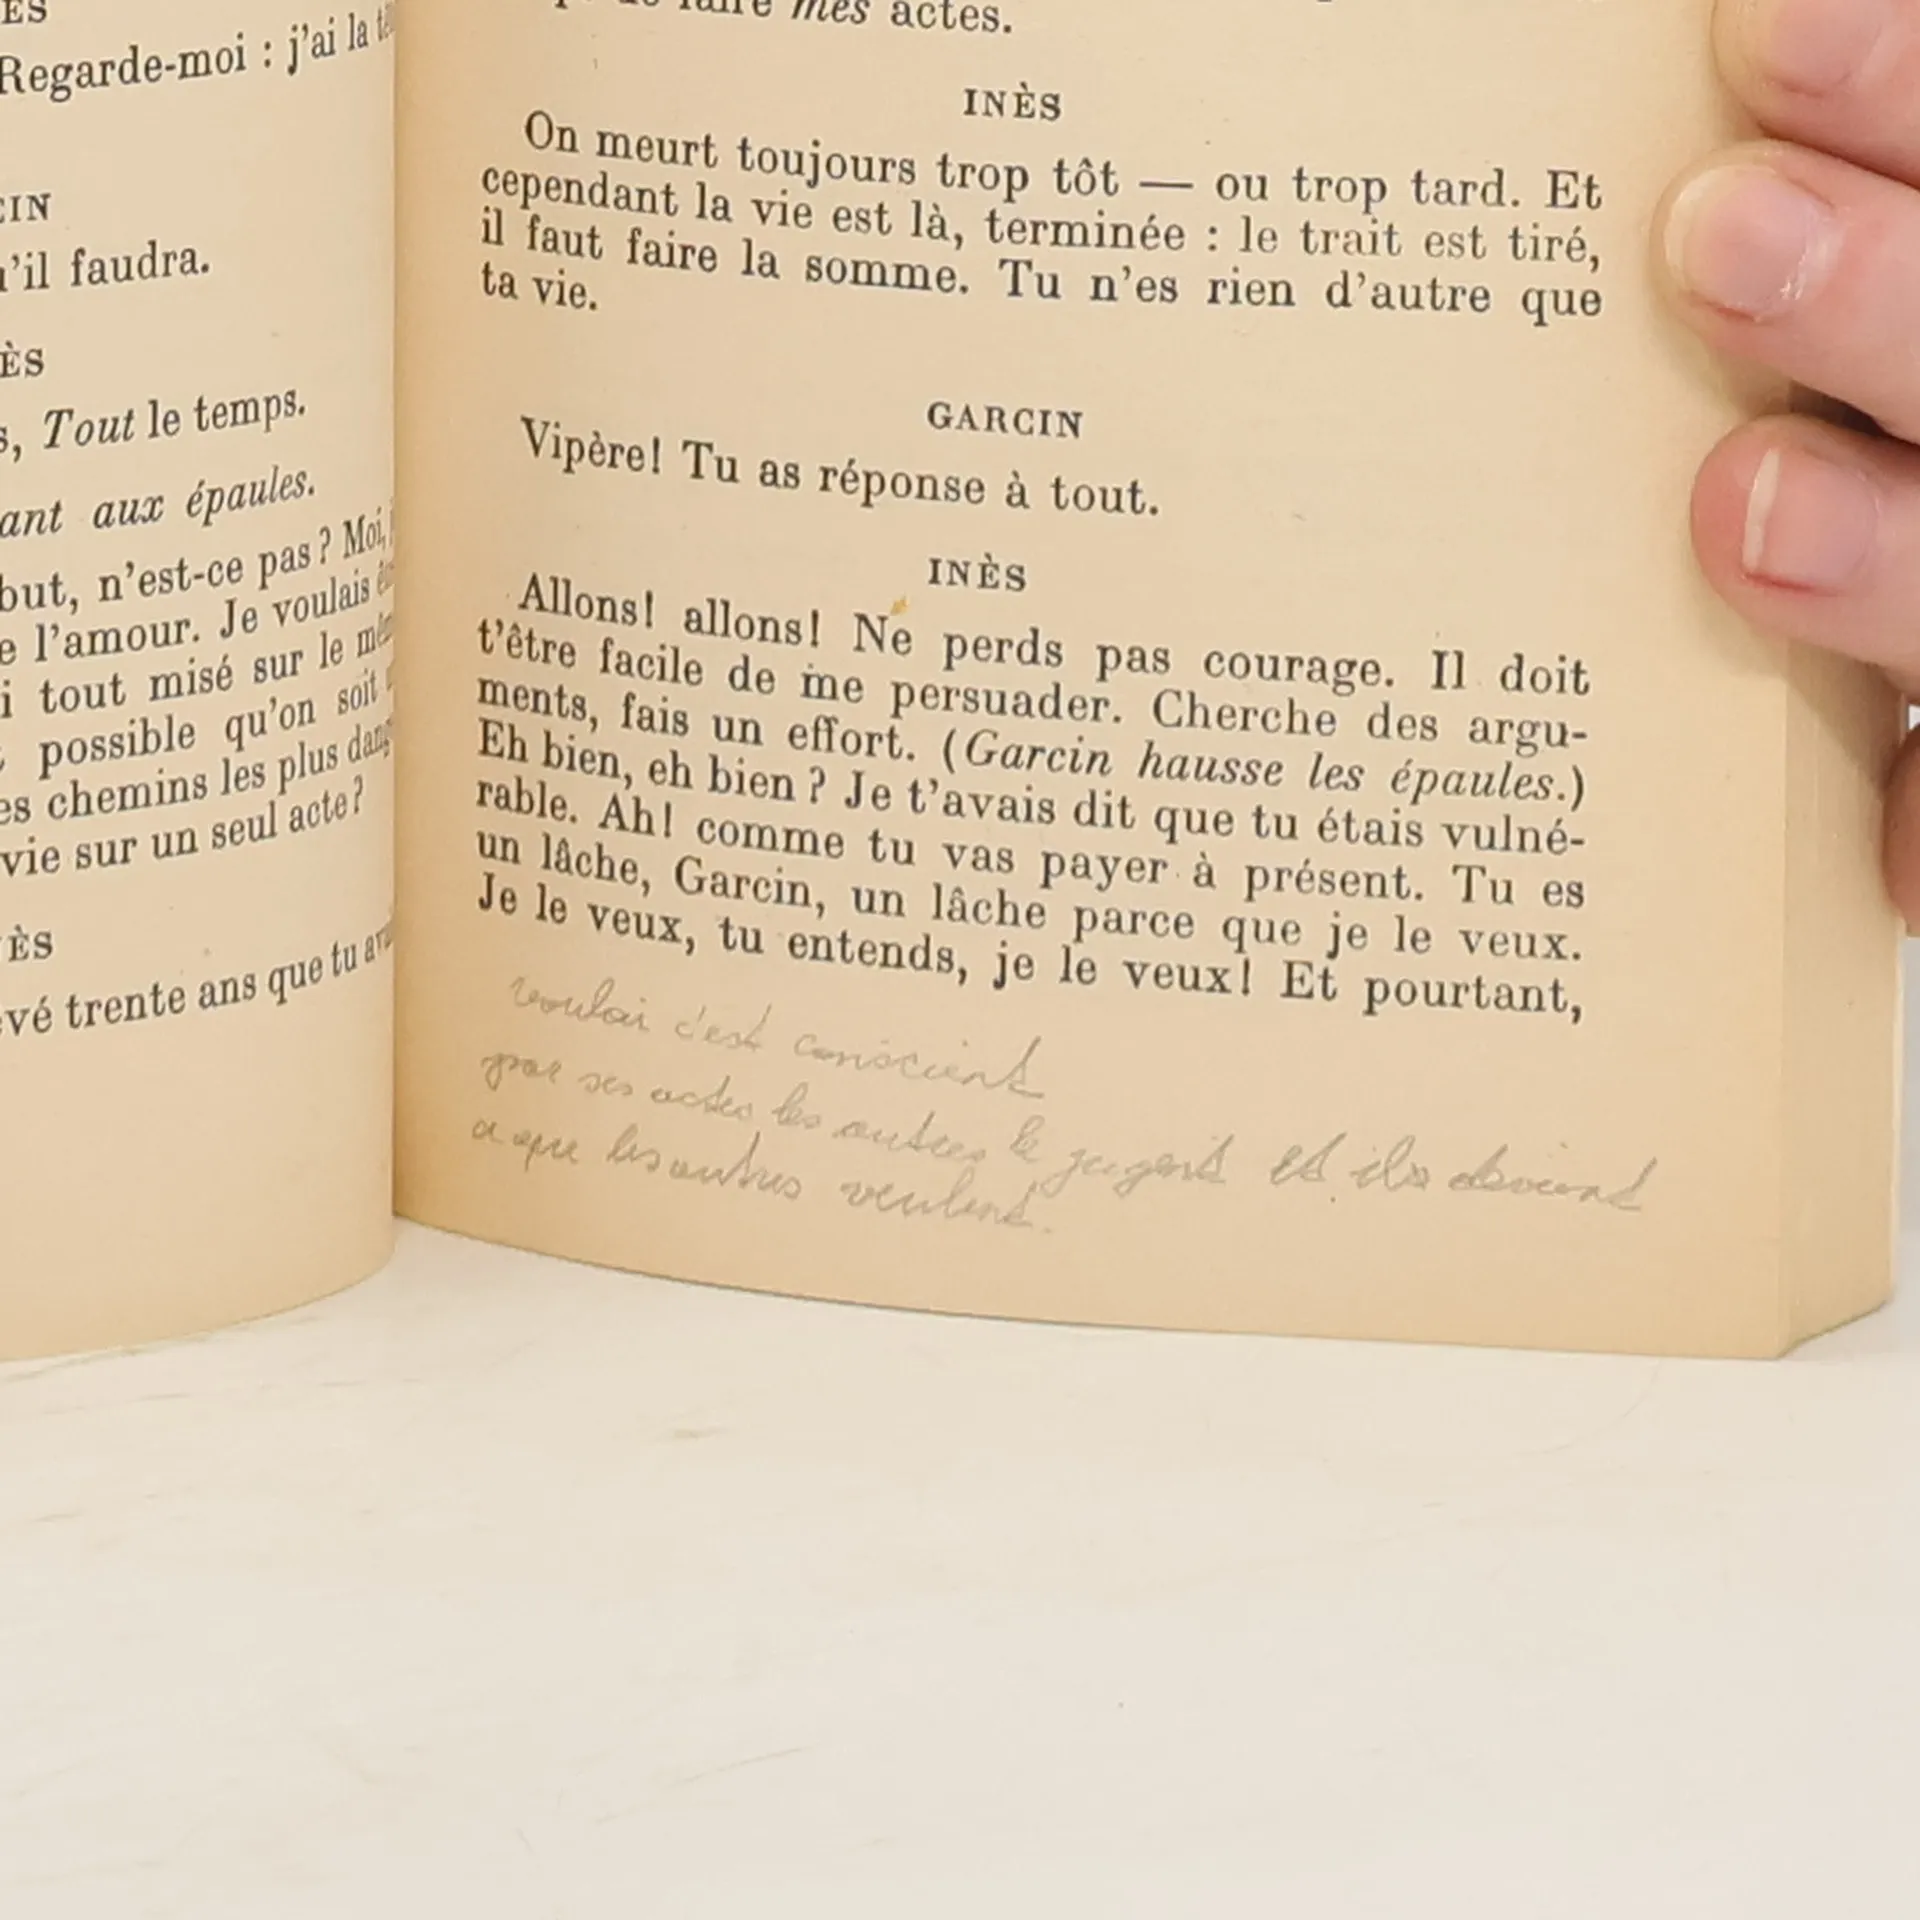 ES
Regarde-moi : j'ai la
CIN
u'il faudra.
ÈS
s, Tout le temps.
ant aux épaules.
but, n'est-ce pas ? Moi,
e l'amour. Je voulais
i tout misé sur le
possible qu'on soit
es chemins les plus
vie sur un seul acte ?
ÈS
vé trente ans que tu
faire mes actes.
INÈS
On meurt toujours trop tôt — ou trop tard. Et
cependant la vie est là, terminée : le trait est tiré,
il faut faire la somme. Tu n'es rien d'autre que
ta vie.
GARCIN
Vipère! Tu as réponse à tout.
INÈS
Allons! allons! Ne perds pas courage. Il doit
t'être facile de me persuader. Cherche des argu-
ments, fais un effort. (Garcin hausse les épaules.)
Eh bien, eh bien ? Je t'avais dit que tu étais vulné-
rable. Ah! comme tu vas payer à présent. Tu es
un lâche, Garcin, un lâche parce que je le veux.
Je le veux, tu entends, je le veux! Et pourtant,
vouloir c'est conscient
par ses actes les autres le jugent et ils
a que les autres veulent.